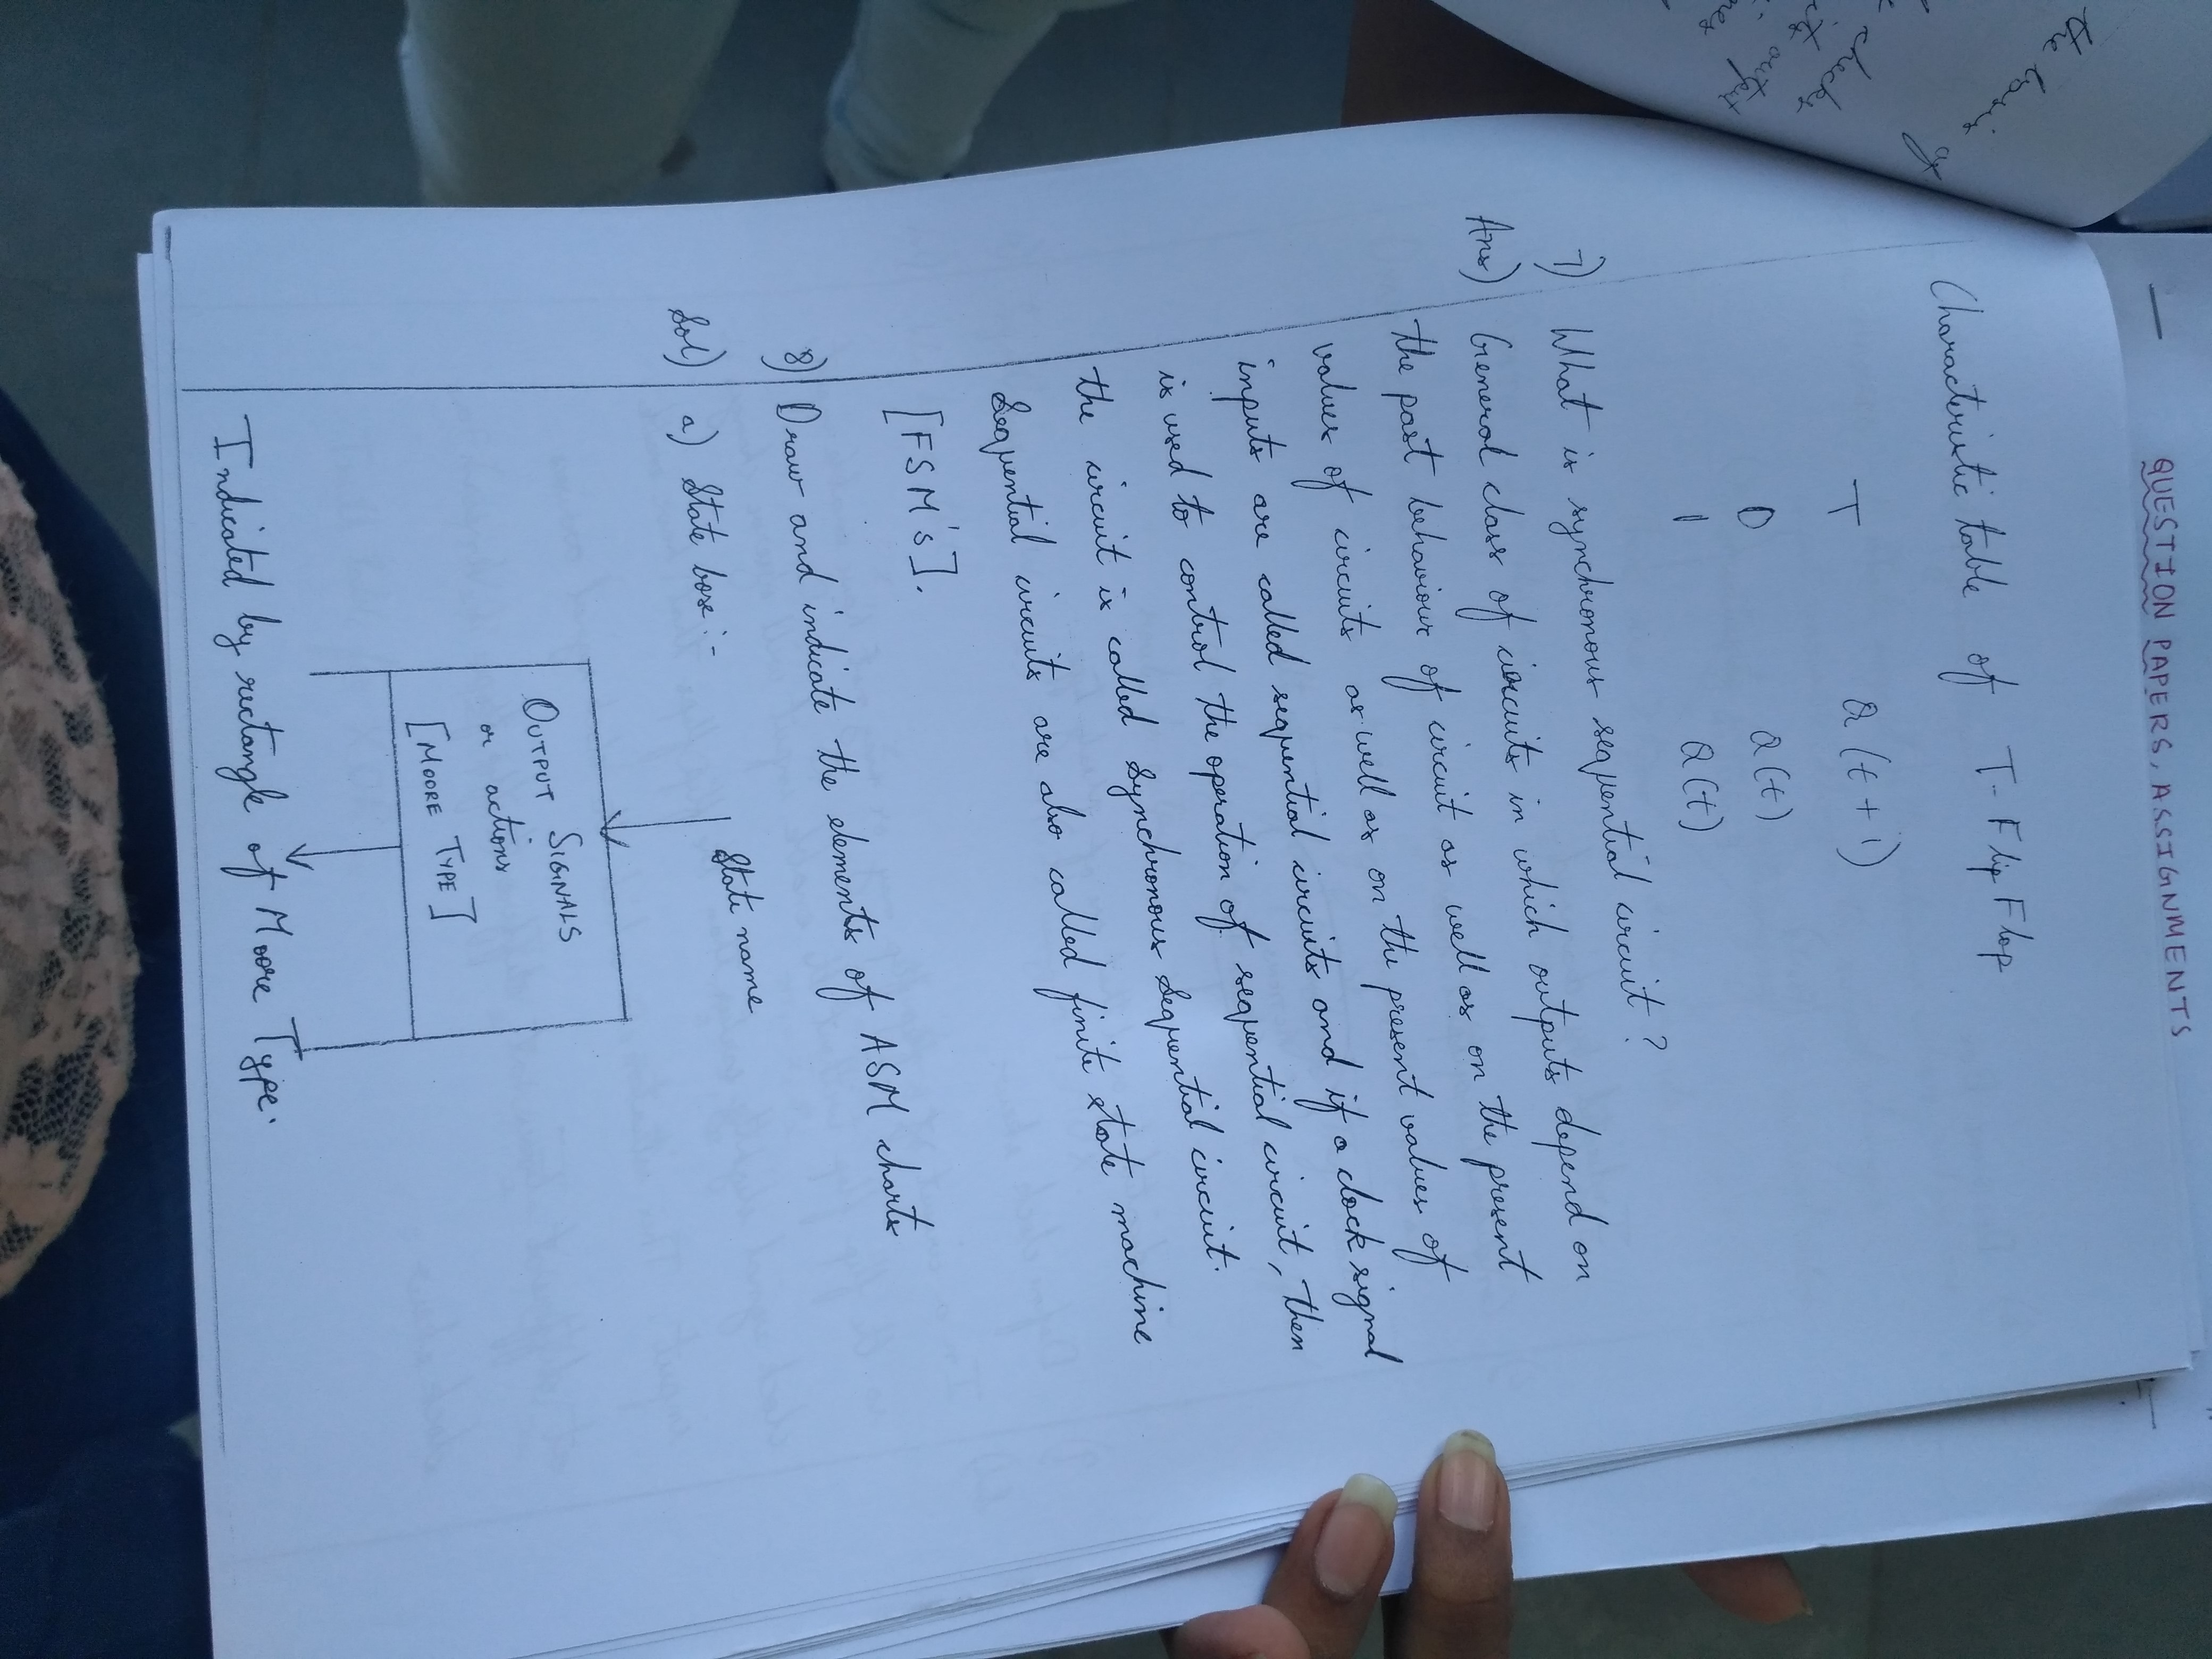 QUESTION PAPERS, ASSIGNMENTS
the basis
of
checks
its output
Characteristic table of T-Flip Flop
T Q(t+1)
0 Q(t)
1 Q(t)
7) What is synchronous sequential circuit?
Ans) General class of circuits in which outputs depend on
the past behaviour of circuit as well as on the present
values of circuits as well as on the present values of
inputs are called sequential circuits and if a clock signal
is used to control the operation of sequential circuit, then
the circuit is called Synchronous Sequential circuit.
Sequential circuits are also called finite state machine
[FSM's].
8) Draw and indicate the elements of ASM charts
Sol) a) State box:-
State name
OUTPUT SIGNALS
or actions
[MOORE TYPE]
Indicated by rectangle of Moore Type.